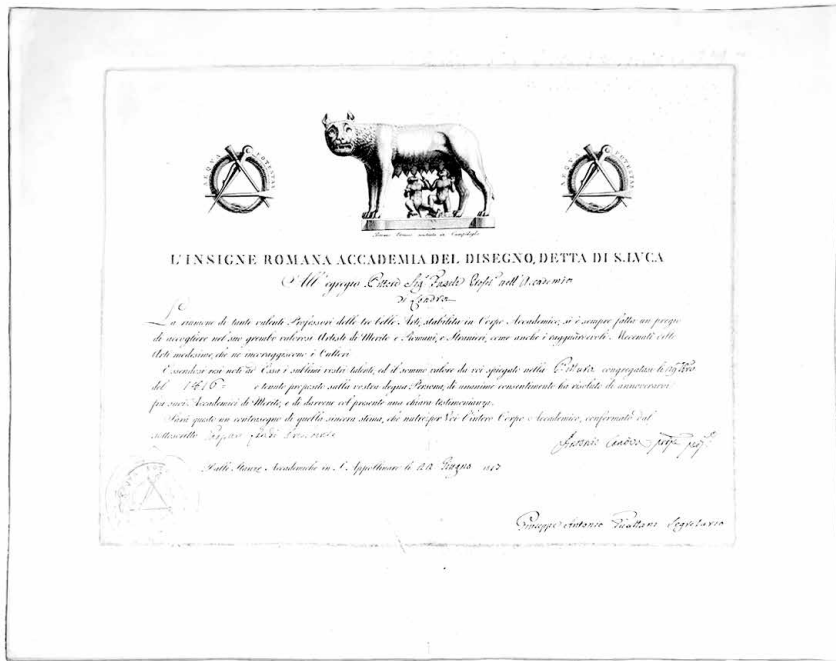 AEQVA POTESTAS
AEQVA POTESTAS
L'INSIGNE ROMANA ACCADEMIA DEL DISEGNO, DETTA DI S. LVCA
All' egregio Pittore Sig.
di Londra
La riunione di tanti valenti Professori delle tre belle Arti, stabilita in Corpo Accademico, si è sempre fatta un pregio
di accogliere nel suo grembo valorosi Artisti di Merito e Romani, e Stranieri, come anche i ragguardevoli Mecenati delle
Arti medesime, che ne incoraggiscono i Cultori.
Essendosi resi noti ad Essa i sublimi vostri talenti, ed il sommo valore da voi spiegato nella Pittura congregatasi li
del 1816 e tenuto proposito sulla vostra degna Persona, di unanime consentimento ha risoluto di annoverarvi
fra suoi Accademici di Merito, e di darvene col presente una chiara testimonianza.
Sarà questo un contrasegno di quella sincera stima, che nutre per Voi l'intero Corpo Accademico, confermato dal
sottoscritto
Dalle Stanze Accademiche in S. Appollinare li Giugno 1817
Antonio
Giuseppe Antonio Segretario